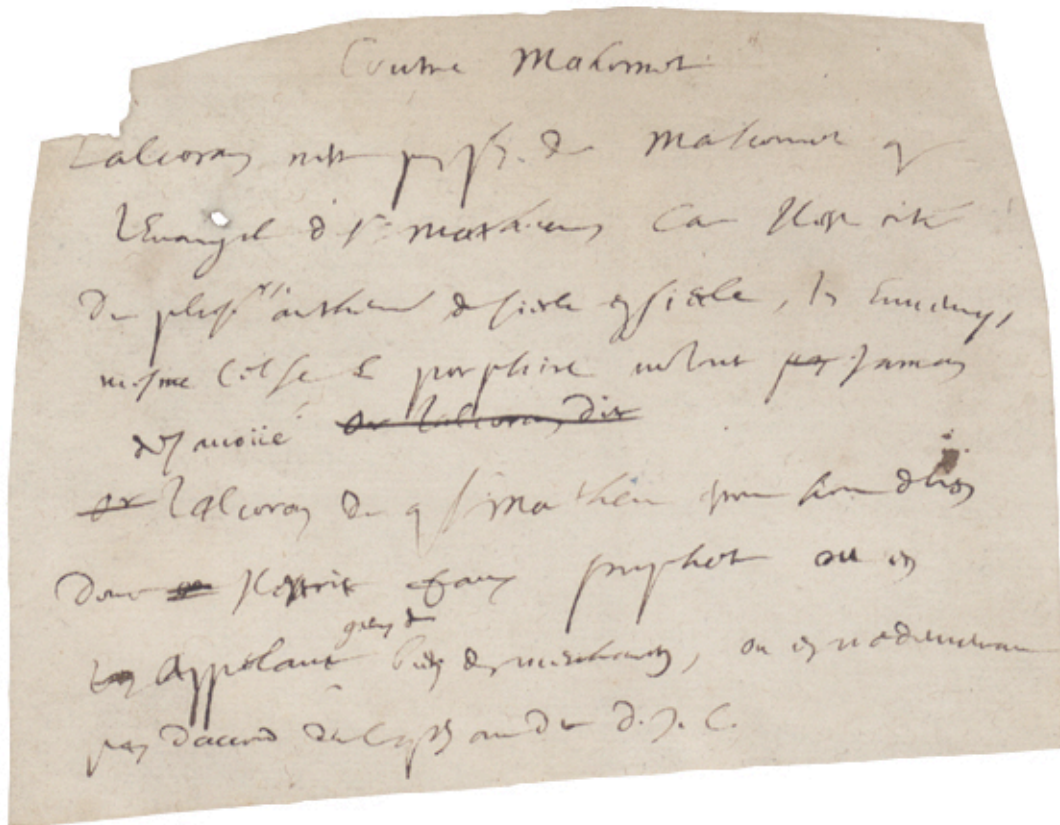 Contre Mahomet
Lalcoran nest pas pl. de Mahomet q
lEuangil d St Mathieu Car Il est cité
De plusrs autheurs de siecle en siecle, les Ennemys,
mesme Celse & porphire ne lont pas jamais
desauoüé or lalcoran dit
or lalcoran dit q St Mathieu estoit homme de bien
Donc Il estoit faux prophete ou en
en Appelant gens de bien des meschants, ou en ne demeurant
pas daccord de ce quils ont dit d. J. C.